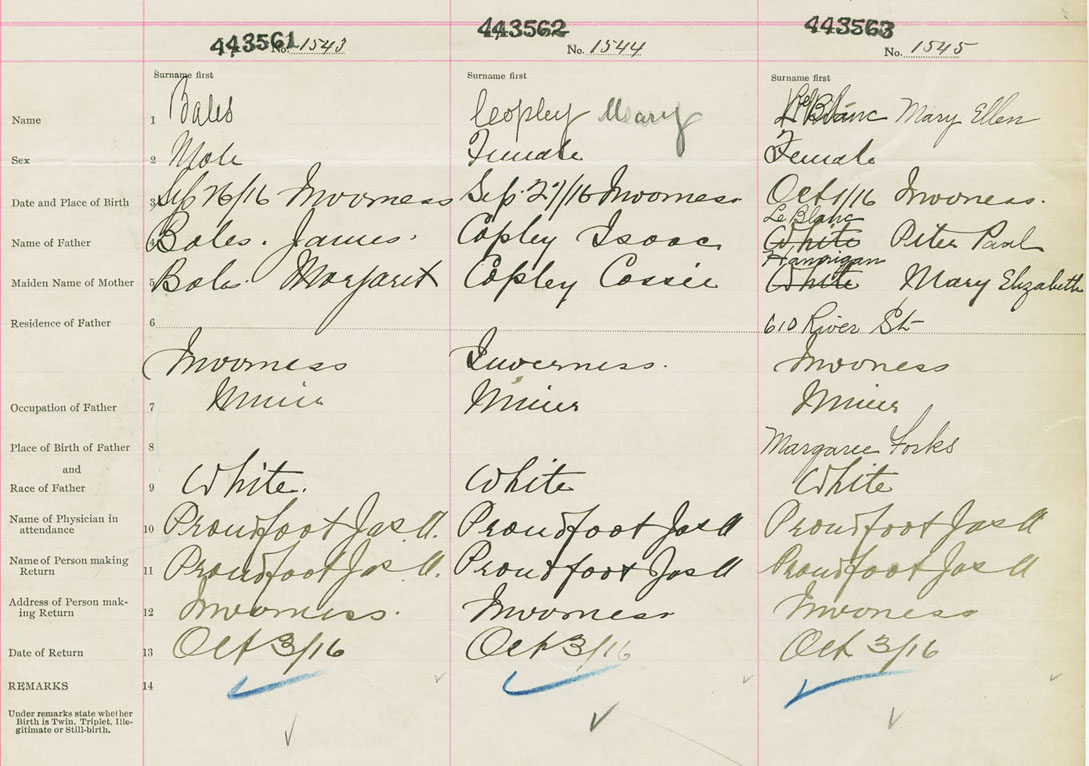 443561 No. 1543 443562 No. 1544 443563 No. 1545
Surname first Surname first Surname first
Name 1 Bales Copley Mary LeBlanc Mary Ellen
Sex 2 Male Female Female
Date and Place of Birth 3 Sep 26/16 Inverness Sep 27/16 Inverness Oct 1/16 Inverness.
LeBlanc
Name of Father 4 Bales. James. Copley Isaac White Peter Paul
Hannigan
Maiden Name of Mother 5 Bales Margaret Copley Cassie White Mary Elizabeth
Residence of Father 6 610 River St
Inverness Inverness. Inverness
Occupation of Father 7 Miner Miner Miner
Place of Birth of Father 8 Margaree Forks
and
Race of Father 9 White. White White
Name of Physician in
attendance 10 Proudfoot Jas A. Proudfoot Jas A Proudfoot Jas A
Name of Person making
Return 11 Proudfoot Jas A. Proudfoot Jas A Proudfoot Jas A
Address of Person mak-
ing Return 12 Inverness. Inverness Inverness
Date of Return 13 Oct 3/16 Oct 3/16 Oct 3/16
REMARKS 14
Under remarks state whether
Birth is Twin, Triplet, Ille-
gitimate or Still-birth.